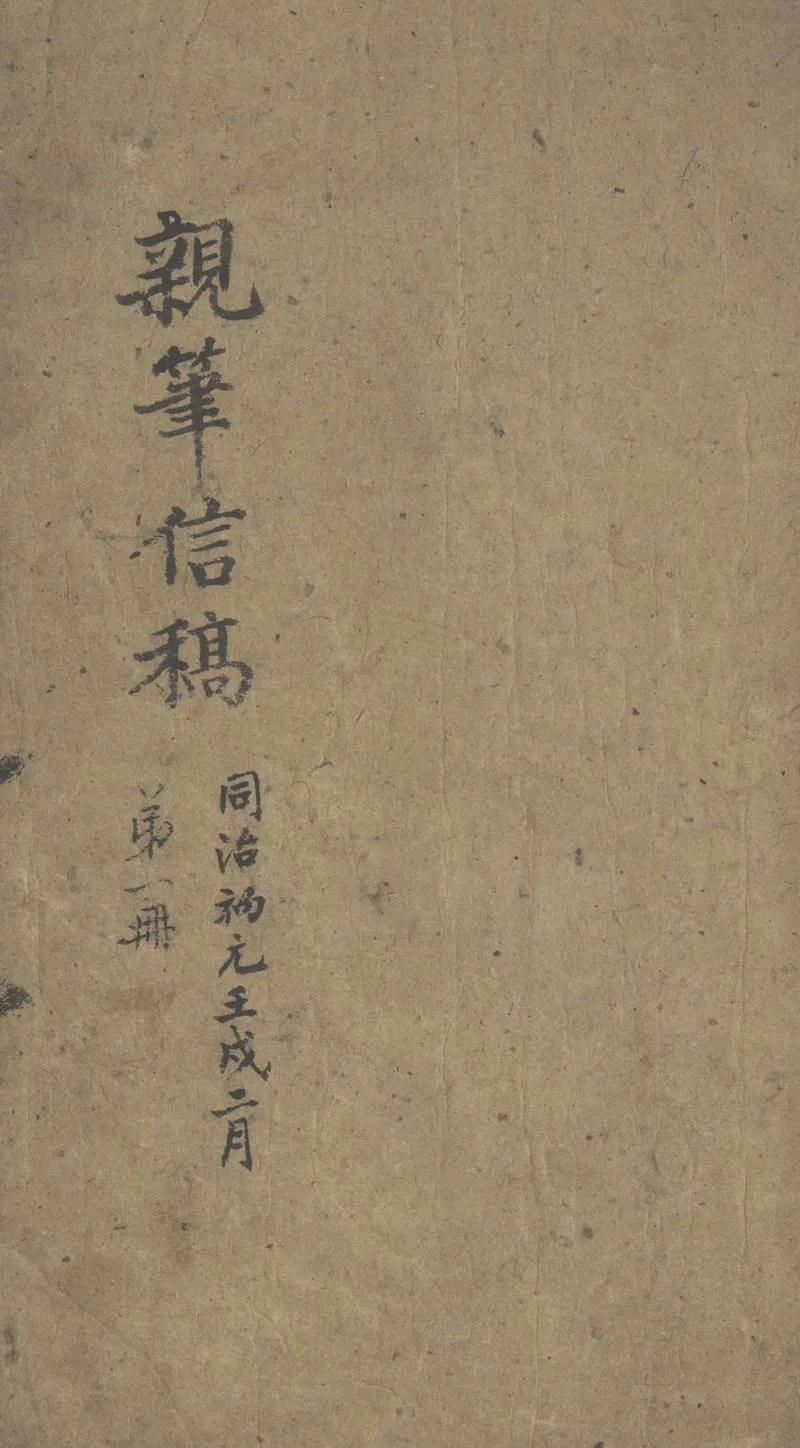 親筆信稿
同治初元壬戌二月
第一冊